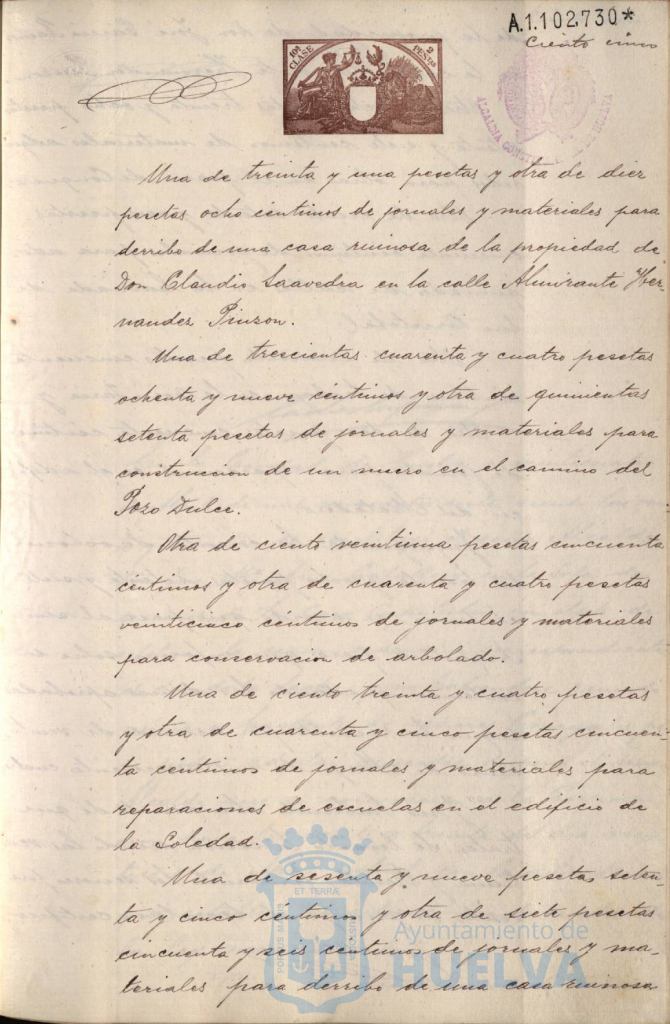 A.1.102.730*
Ciento cinco
10ª CLASE
2 PESETAS
ALCALDIA CONST DE HUELVA
Una de treinta y una pesetas y otra de diez
pesetas ocho céntimos de jornales y materiales para
derribo de una casa ruinosa de la propiedad de
Don Claudio Saavedra en la calle Almirante Her-
nandez Pinzon.
Una de trescientas cuarenta y cuatro pesetas
ochenta y nueve céntimos y otra de quinientas
setenta pesetas de jornales y materiales para
construccion de un muro en el camino del
Pozo Dulce.
Otra de ciento veintiuna pesetas cincuenta
céntimos y otra de cuarenta y cuatro pesetas
veinticinco céntimos de jornales y materiales
para conservacion de arbolado.
Una de ciento treinta y cuatro pesetas
y otra de cuarenta y cinco pesetas cincuen-
ta céntimos de jornales y materiales para
reparaciones de escuelas en el edificio de
la Soledad.
Una de sesenta y nueve pesetas seten-
ta y cinco céntimos y otra de siete pesetas
cincuenta y seis céntimos de jornales y ma-
teriales para derribo de una casa ruinosa
ET TERRÆ
Ayuntamiento de
HUELVA